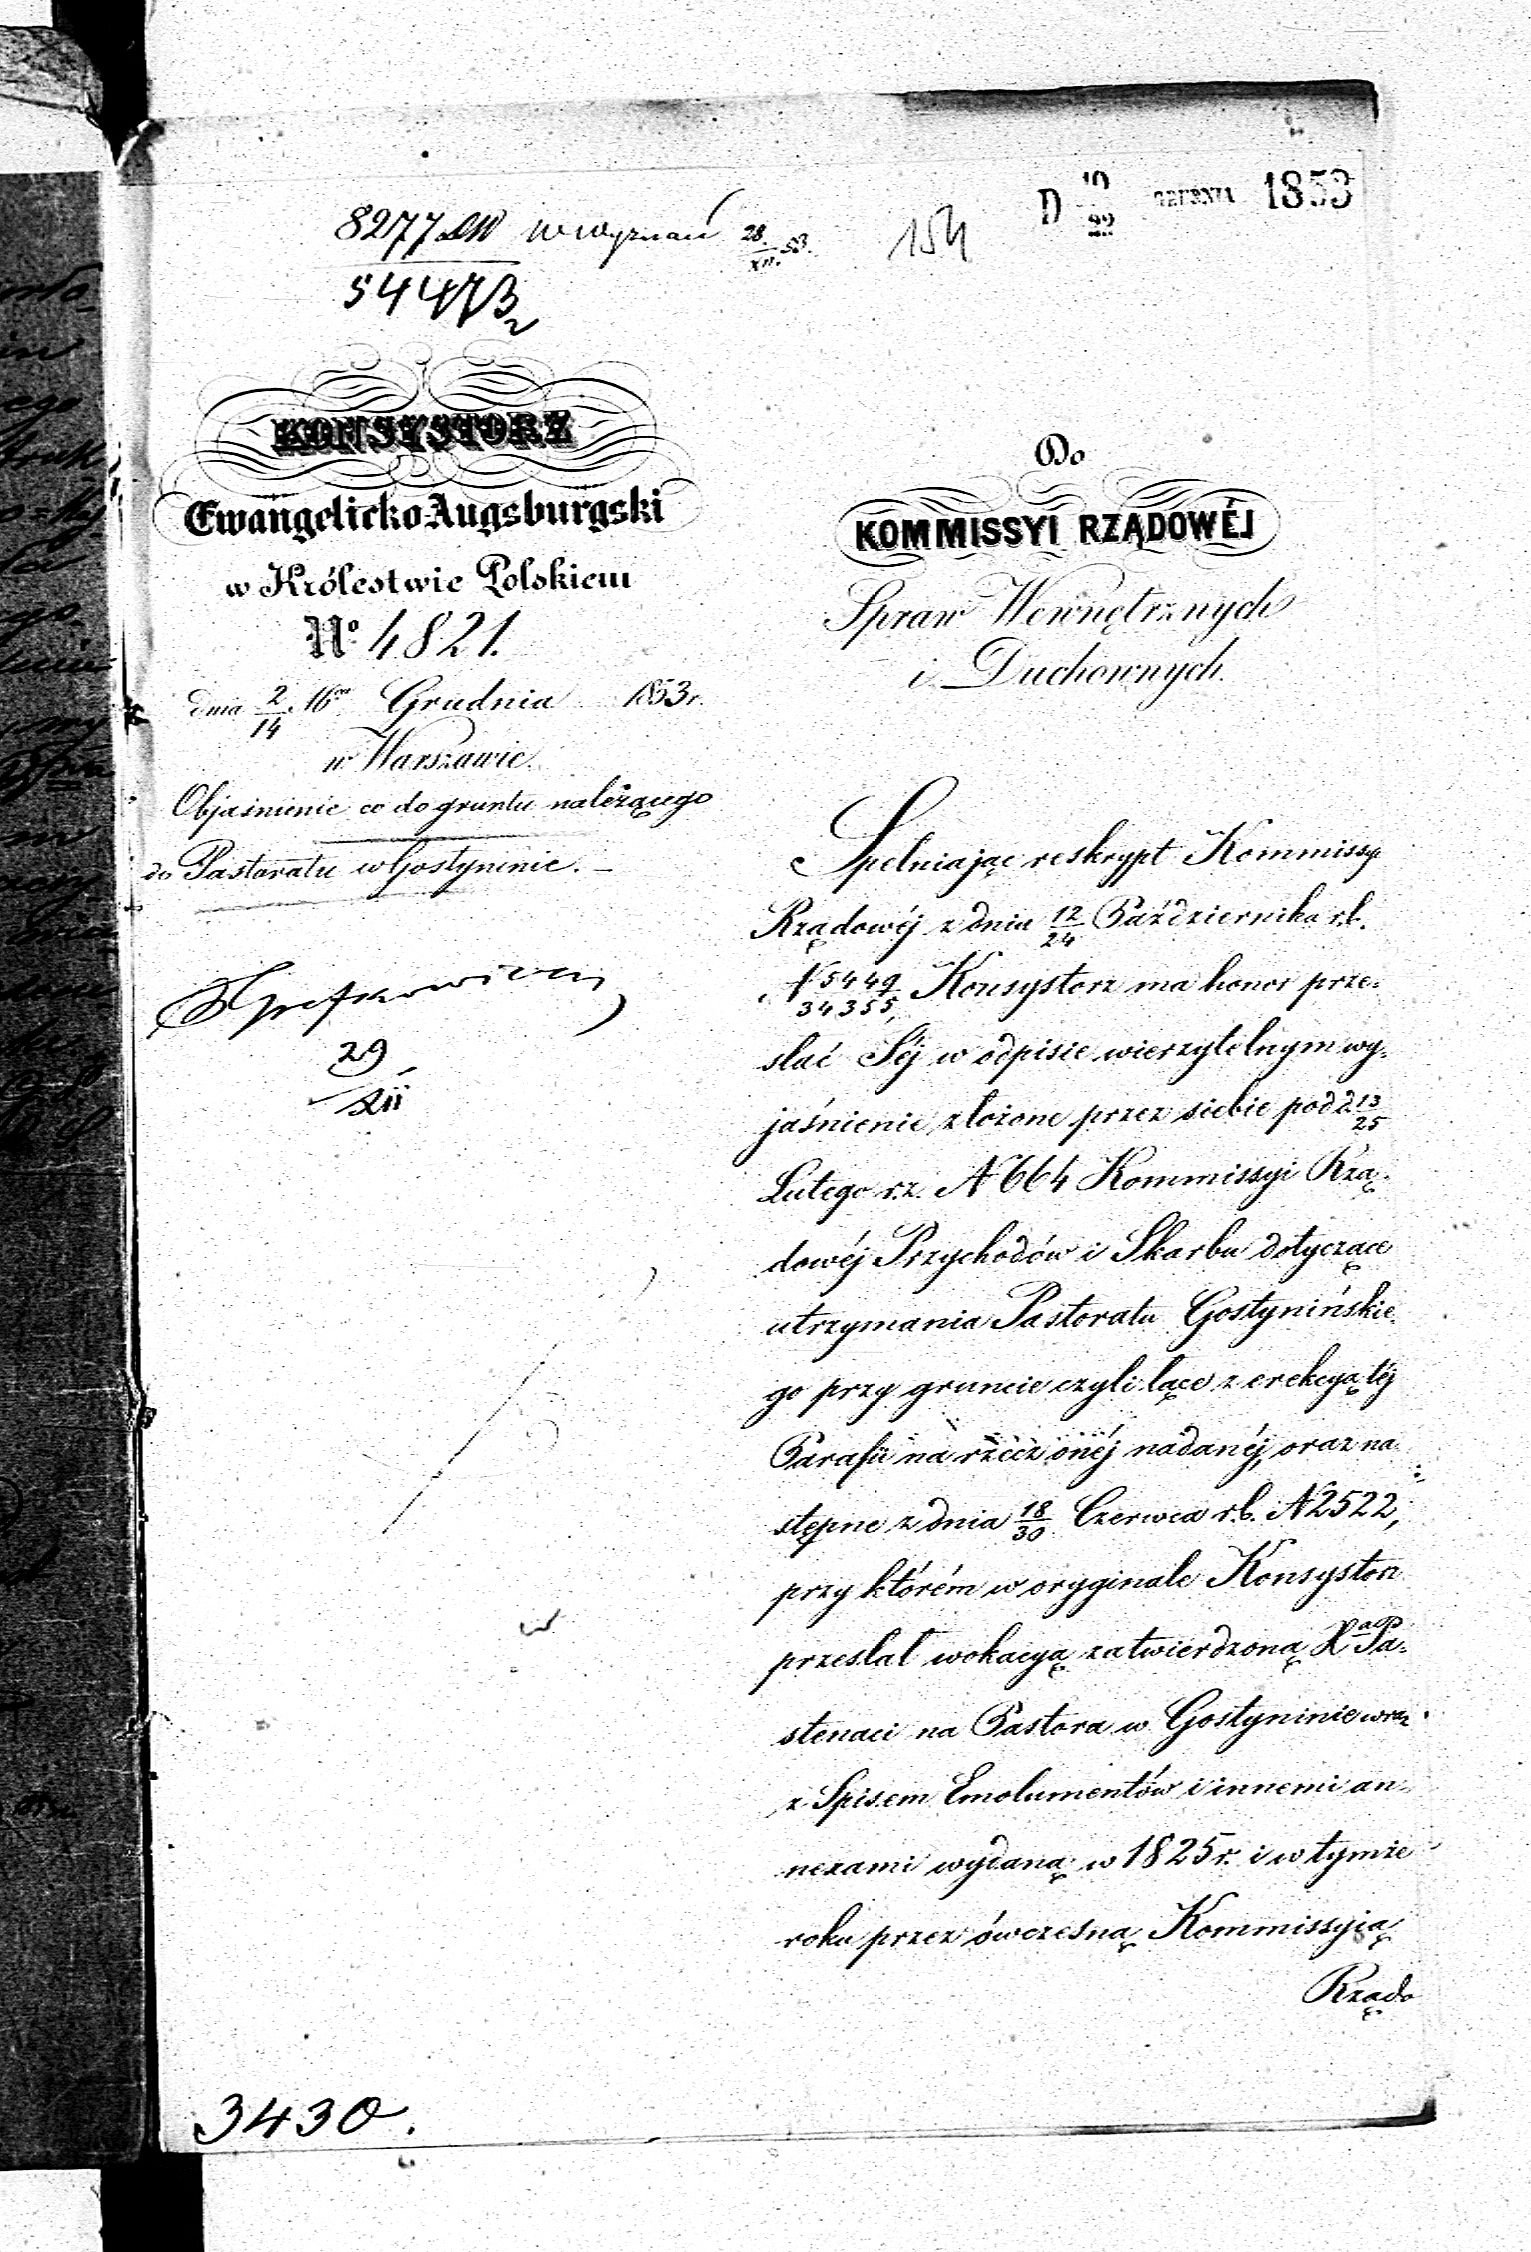 D 10/22 GRUDNIA 1853
8277 w wyznań 28/XII 53. 154
54473
KONSYSTORZ
Ewangelicko Augsburgski
w Królestwie Polskiem
No 4821.
dnia 2/14 Grudnia 1853 r.
w Warszawie.
Objaśnienie co do gruntu należącego
do Pastoratu w Gostyninie. —
29/XII
Do
KOMMISSYI RZĄDOWÉJ
Spraw Wewnętrznych
i Duchownych.
Spełniając reskrypt Kommissyi
Rządowéj z dnia 12/24 Października r.b.
N 5449/34355, Konsystorz ma honor prze-
słać Jéj w odpisie wierzytelnym wy-
jaśnienie złożone przez siebie pod d. 13/25
Lutego r.z. N 664 Kommissyi Rzą-
dowéj Przychodów i Skarbu dotyczące
utrzymania Pastoratu Gostynińskie-
go przy gruncie czyli łące z erekcyą téj
Parafii na rzecz onéj nadanéj, oraz na-
stępne z dnia 18/30 Czerwca r.b. N 2522,
przy którém w oryginale Konsystorz
przesłał wokacyą zatwierdzoną X Pa-
stenaci na Pastora w Gostyninie wraz
z Spisem Emolumentów i innemi an-
nexami wydaną w 1825 r. i w tymże
roku przez ówczesną Kommissyią
Rządo
3430.